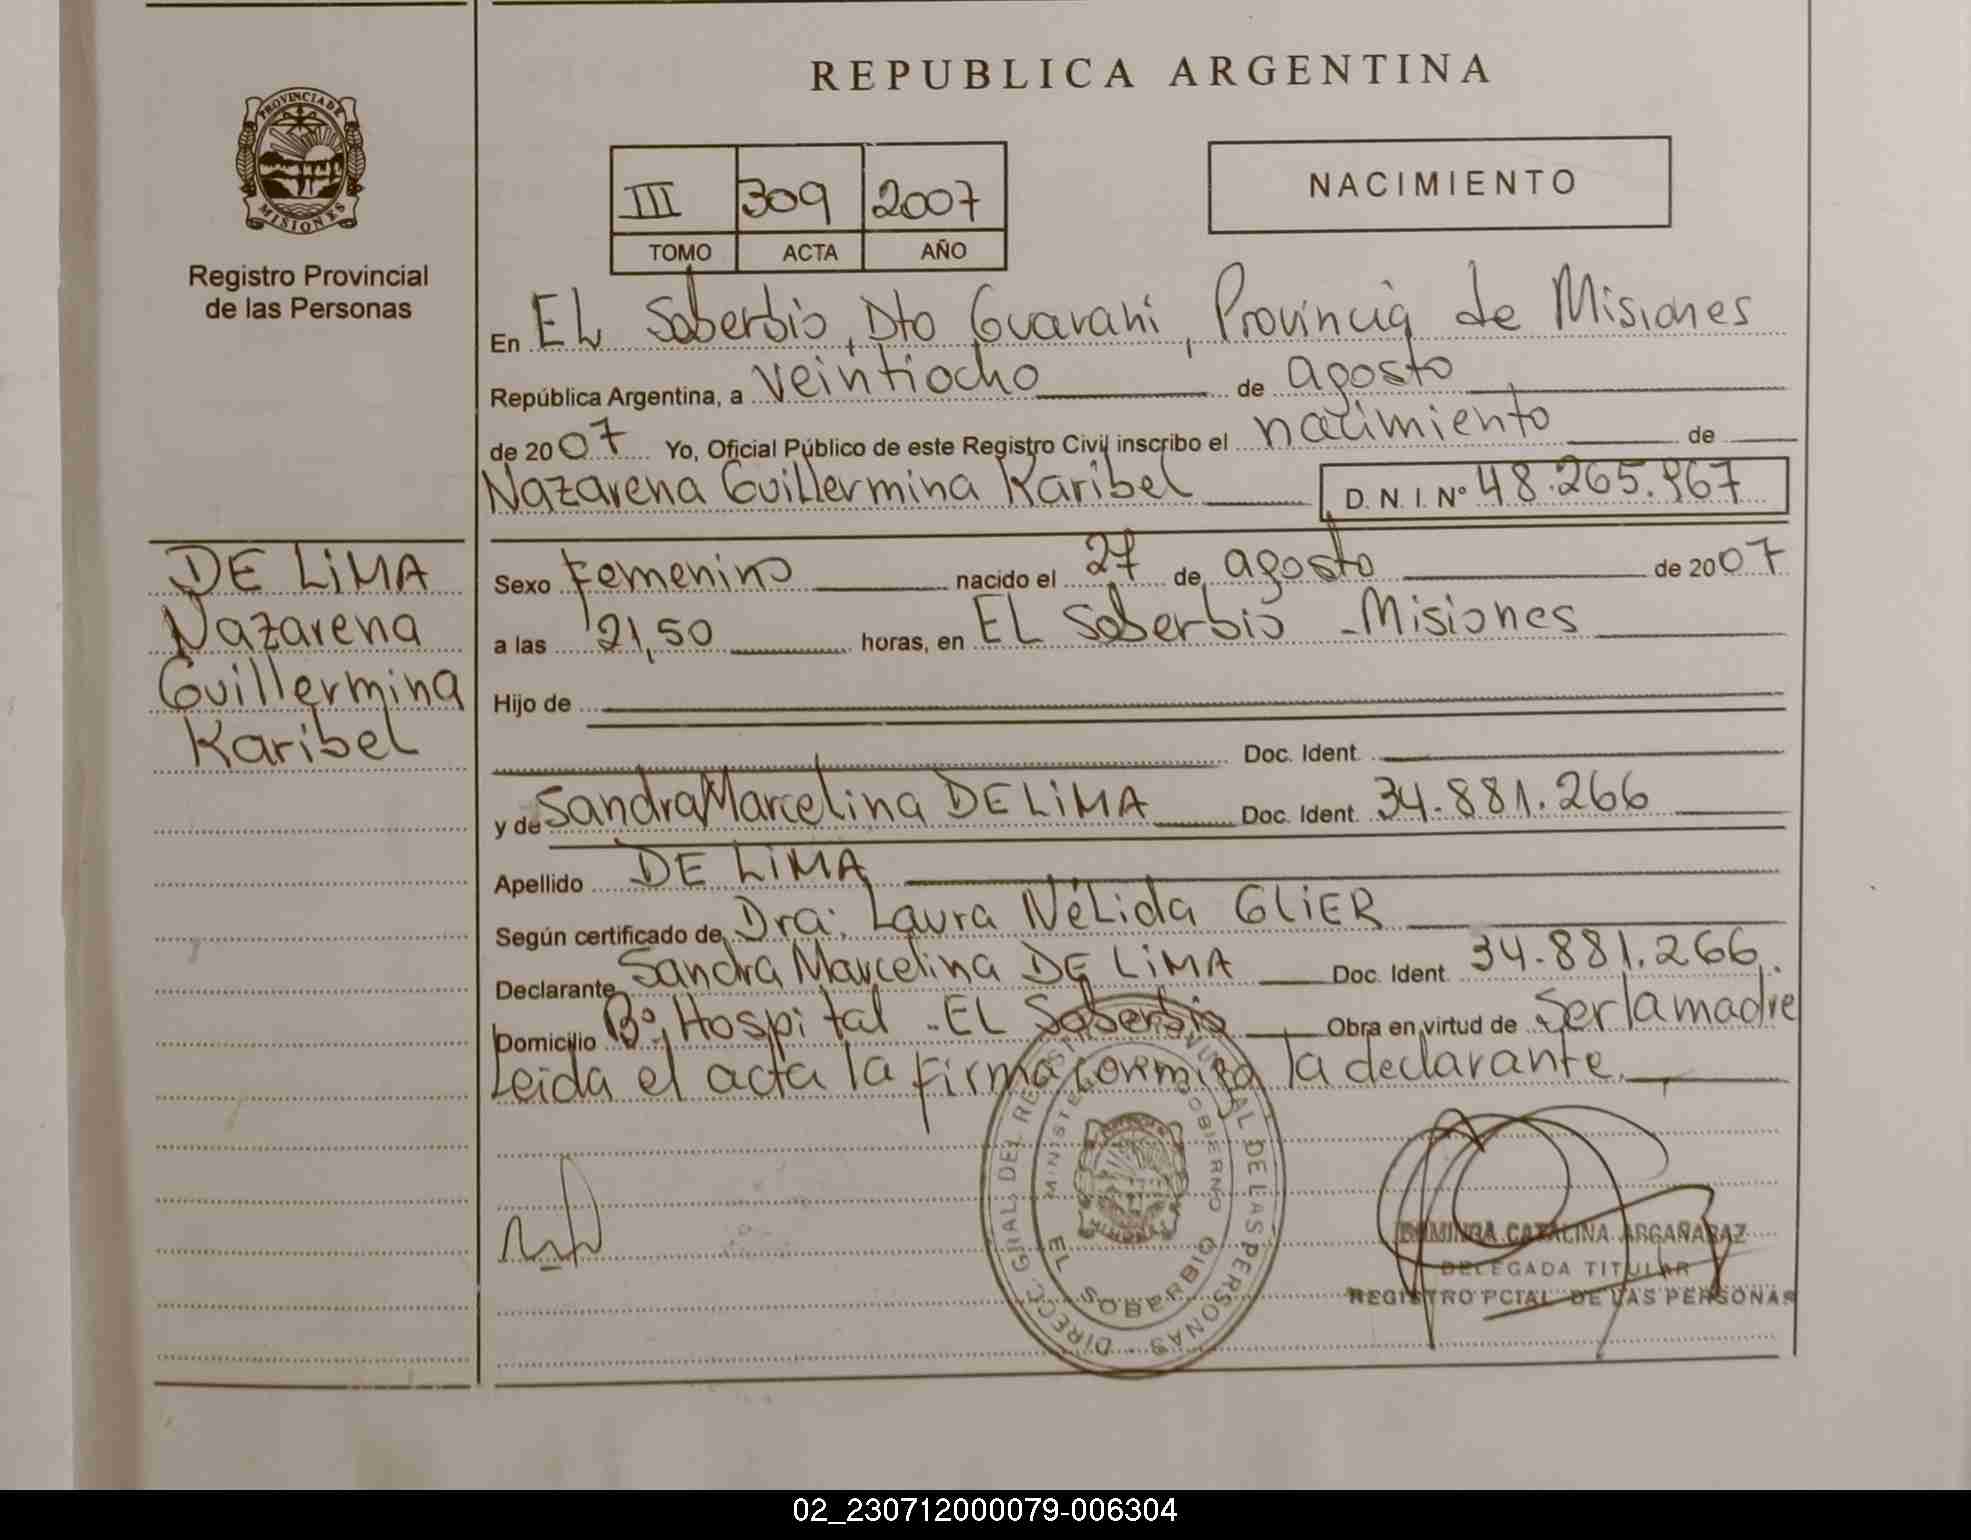 REPUBLICA ARGENTINA
PROVINCIA DE MISIONES
Registro Provincial
de las Personas
III 309 2007
TOMO ACTA AÑO
NACIMIENTO
En EL Soberbio, Dto Guarani, Provincia de Misiones
República Argentina, a veintiocho de agosto
de 2007 Yo, Oficial Público de este Registro Civil inscribo el nacimiento de
Nazarena Guillermina Karibel D. N. I. Nº 48.265.967
DE LiMA
Nazarena
Guillermina
Karibel
Sexo Femenino nacido el 27 de agosto de 2007
a las 21,50 horas, en EL Soberbio - Misiones
Hijo de
Doc. Ident.
y de Sandra Marcelina DE LiMA Doc. Ident. 34.881.266
Apellido DE LiMA
Según certificado de Dra: Laura NéLida GLiER
Declarante Sandra Marcelina DE LiMA Doc. Ident. 34.881.266.
Domicilio Bº Hospital - EL Soberbio Obra en virtud de Ser la madre
Leida el acta la firma conmigo la declarante.
DIRECC. GRAL. DEL REGISTRO DE LAS PERSONAS
MINISTERIO GOBIERNO
MISIONES
EL SOBERBIO
CATALINA ARGAÑARAZ
DELEGADA TITULAR
REGISTRO PCIAL DE LAS PERSONAS
02_230712000079-006304